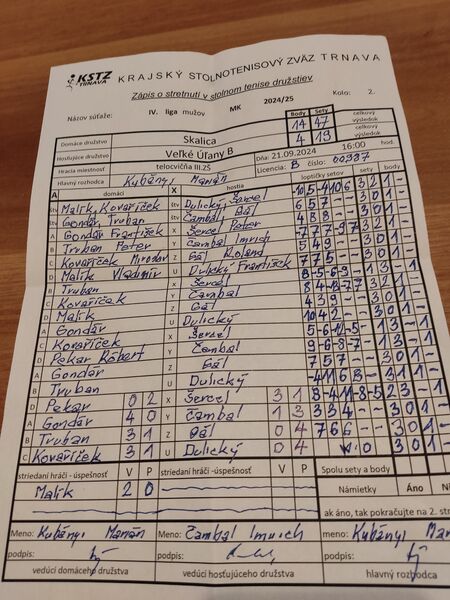 KSTZ
TRNAVA
KRAJSKÝ STOLNOTENISOVÝ ZVÄZ TRNAVA
Zápis o stretnutí v stolnom tenise družstiev
Názov súťaže: IV. liga mužov MK 2024/25 Kolo: 2.
Body Sety celkový výsledok
Domáce družstvo Skalica 14 47
Hosťujúce družstvo Veľké Úľany B 4 19 celkový výsledok
Hracia miestnosť telocvičňa III.ZŠ Dňa: 21.09.2024 16:00 hod.
Hlavný rozhodca Kubányi Marián Licencia: B číslo: 00987
A domáci X hostia loptičky setov sety body
Štv Malík, Kovaríček Štv Dulický, Šercel 10 5 -4 10 6 3 2 1 -
Štv Gondár, Truban Štv Čambal Gál 6 5 7 - - 3 0 1 -
A Gondár František X Šercel Peter 4 8 8 - - 3 0 1 -
B Truban Peter Y Čambal Imrich -7 7 7 -9 7 3 2 1 -
C Kovaríček Miroslav Z Gál Roland 5 4 9 - - 3 0 1 -
D Malík Vladimír U Dulický František 7 7 5 - - 3 0 1 -
B Truban X Šercel
C Kovaríček Y Čambal
D Malík Z Gál 4 3 9 - - 3 0 1 -
A Gondár U Dulický
C Kovaríček X Šercel
D Pekar Róbert Y Čambal
A Gondár Z Gál 7 5 7 - - 3 0 1 -
B Truban U Dulický
D Pekar 0 2 X Šercel 3 1
A Gondár 4 0 Y Čambal 1 3 3 3 4 - - 3 0 1 -
B Truban 3 1 Z Gál 0 4 7 6 6 - - 3 0 1 -
C Kovaríček 3 1 U Dulický 0 4 w. 0 3 0 1 -
striedaní hráči - úspešnosť V P striedaní hráči - úspešnosť V P Spolu sety a body
Malík 2 0
Námietky Áno
ak áno, tak pokračujte na 2. str
Meno: Kubányi Marián Meno: Čambal Imrich meno: Kubányi
podpis: podpis: podpis:
vedúci domáceho družstva vedúci hosťujúceho družstva hlavný rozhodca